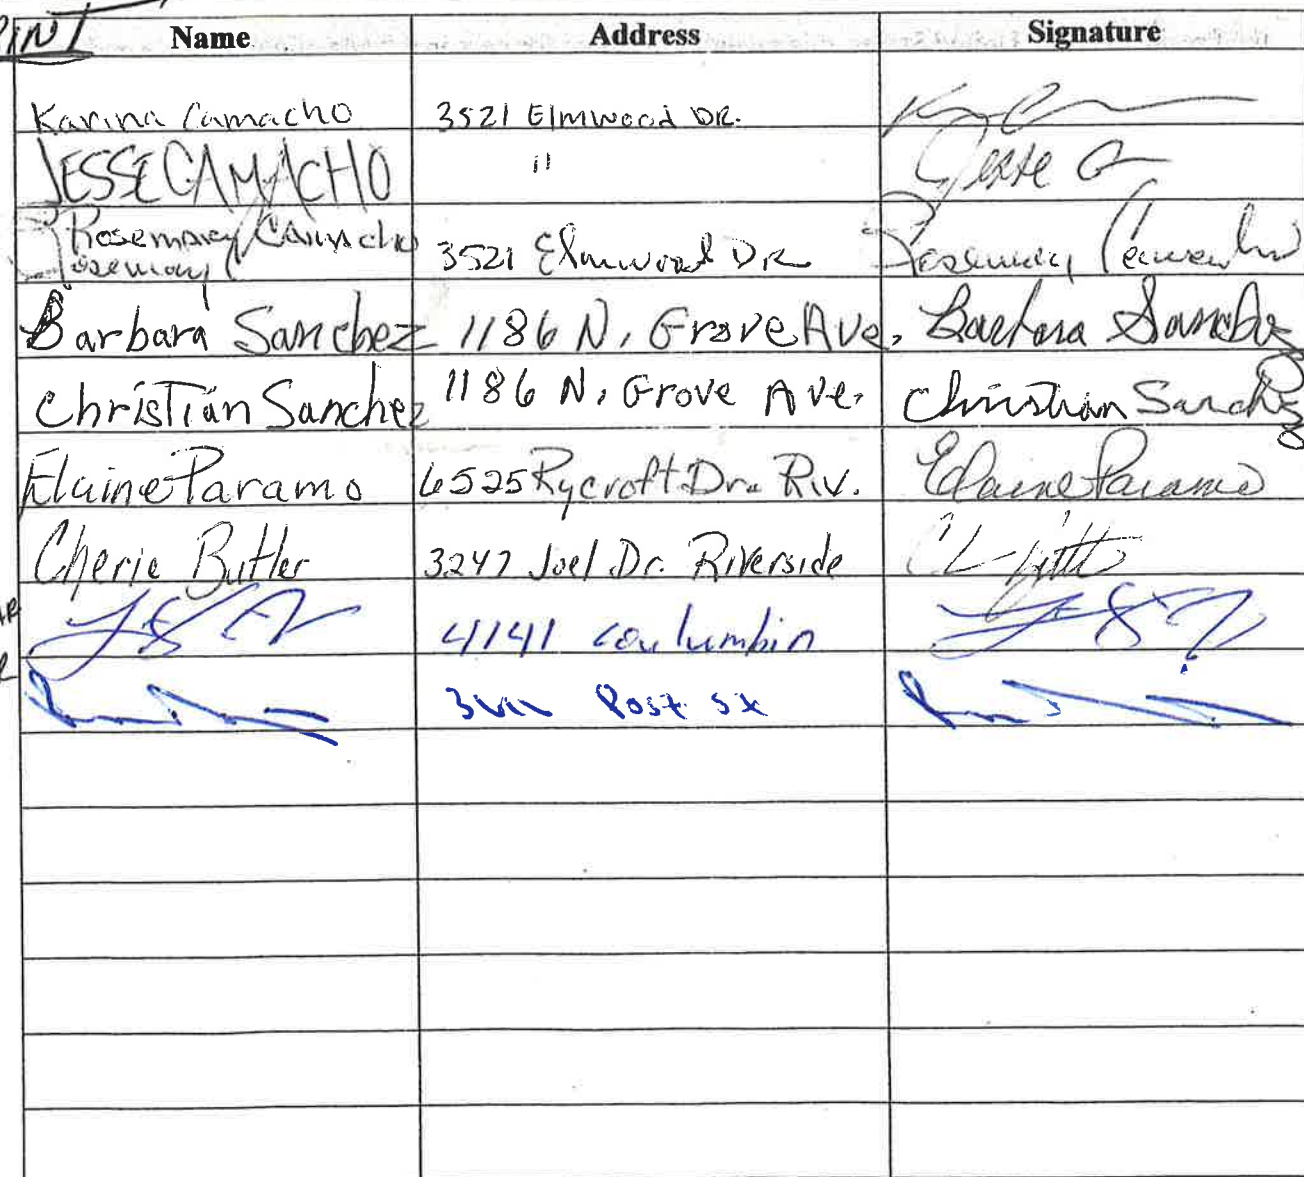 PRINT
Name Address Signature
Karina Camacho 3521 Elmwood DR.
JESSE CAMACHO " Jesse C
Rosemary Camacho 3521 Elmwood DR Rosemary Camacho
Rosemary
Barbara Sanchez 1186 N. Grove Ave. Barbara Sanchez
Christian Sanchez 1186 N. Grove Ave. Christian Sanchez
Elaine Paramo 6525 Rycroft Dr. Riv. Elaine Paramo
Cherie Butler 3247 Joel Dr. Riverside
4141 Coulumbin
Post st